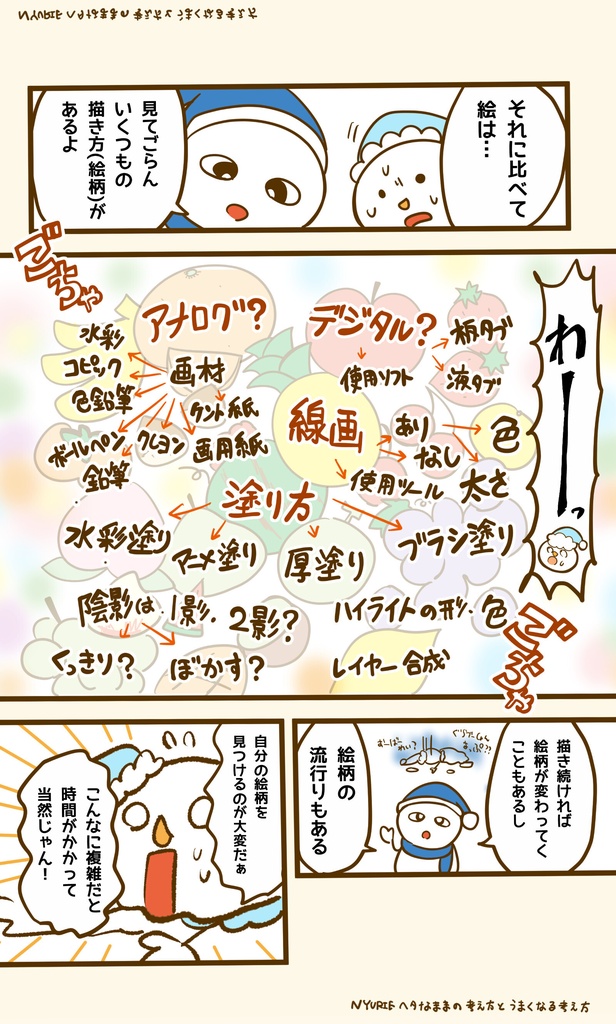 NYURIE ヘタなままの考え方とうまくなる考え方
それに比べて
絵は…
見てごらん
いくつもの
描き方(絵柄)が
あるよ
ごちゃ
アナログ?
画材
水彩
コピック
色鉛筆
ボールペン
鉛筆
クレヨン
ケント紙
画用紙
デジタル?
使用ソフト
板タブ
液タブ
線画
あり
なし
色
太さ
使用ツール
塗り方
水彩塗り
アニメ塗り
厚塗り
ブラシ塗り
陰影は 1影、2影?
くっきり?
ぼかす?
ハイライトの形、色
レイヤー合成
わーーっ
ごちゃ
描き続ければ
絵柄が変わってく
こともあるし
絵柄の
流行りもある
自分の絵柄を
見つけるのが大変だぁ
こんなに複雑だと
時間がかかって
当然じゃん!
NYURIE ヘタなままの考え方とうまくなる考え方